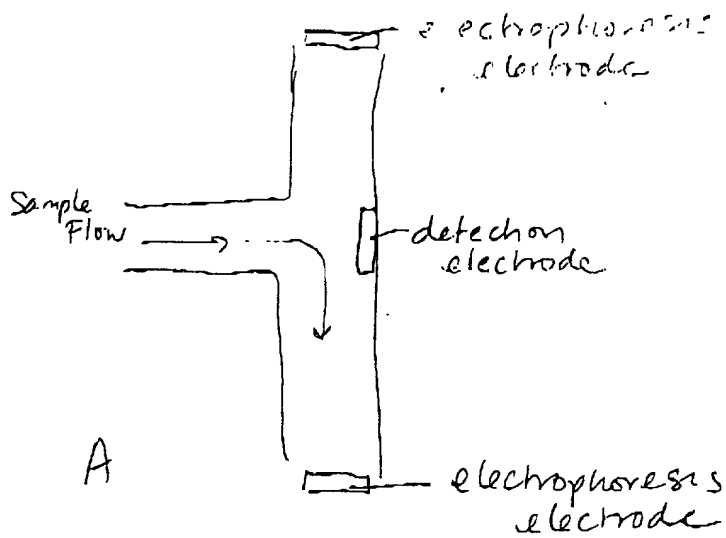 electrophoresis
electrode
Sample
Flow
detection
electrode
A
electrophoresis
electrode